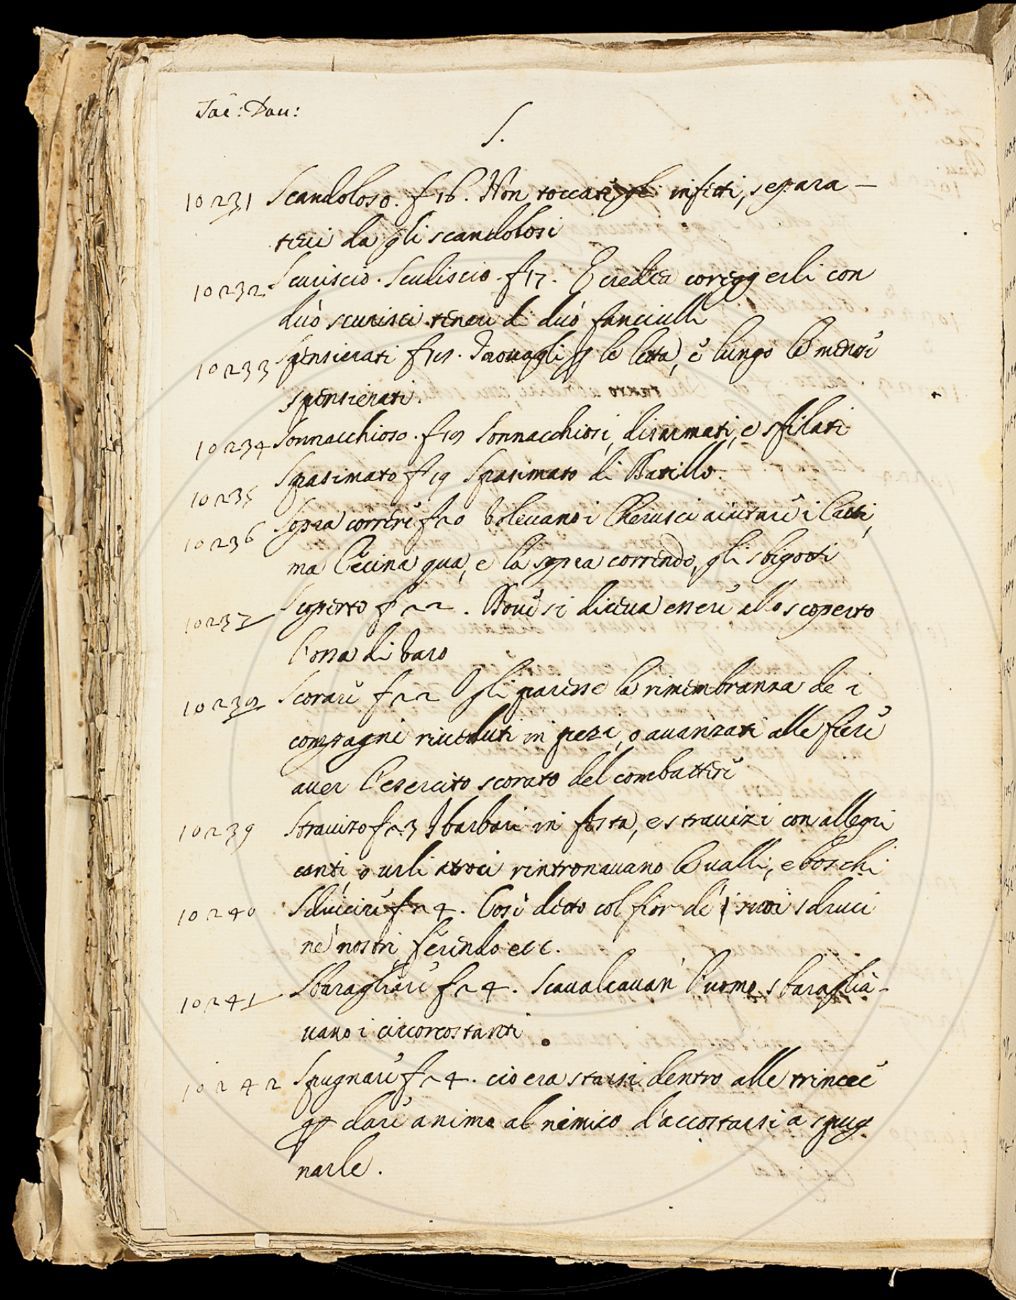 Tac: Dav:
S.
10231 Scandoloso. f 16. Non toccati gl' infetti, separa-
tevi da gli scandolosi
10232 Scuriscio. Sculiscio. f 17. correggerli con
duo scurisci teneri di duo fanciulli
10233 Spensierati f 19. Travagli le letta, e lungo le mense
spensierati.
10234 Sonnacchioso. f 19 Sonnacchiosi, disarmati, e sfilati
10235 Spasimato f 19 Spasimato di Batillo.
10236 Sopra correre f 20 Volevano i Cherusci aiutare i Catti,
ma Cecina qua, e la sopra correndo, gli sbigottì
10237 Scoperto f 22. Dove si diceva essere allo scoperto
l'ossa di Varo
10239 Scorare f 22 O gli paresse la rimembranza de i
compagni in pezzi, o avanzati alle fiere
aver l'esercito scorato del combattere
10239 Stravizo f 23 I barbari in festa, e stravizi con allegri
canti, o urli atroci rintronavano le valli, e boschi
10240 Sdrucire f 24. Così detto col fior de' suoi sdruci
ne' nostri, ferendo etc.
10241 Sbaragliare f 24. Scavalcavan' l'uomo, sbaraglia-
vano i circorcostanti
10242 Spugnare f 24. cio era starsi dentro alle trincee
per dare animo al nemico d'accostarsi a spug
narle.